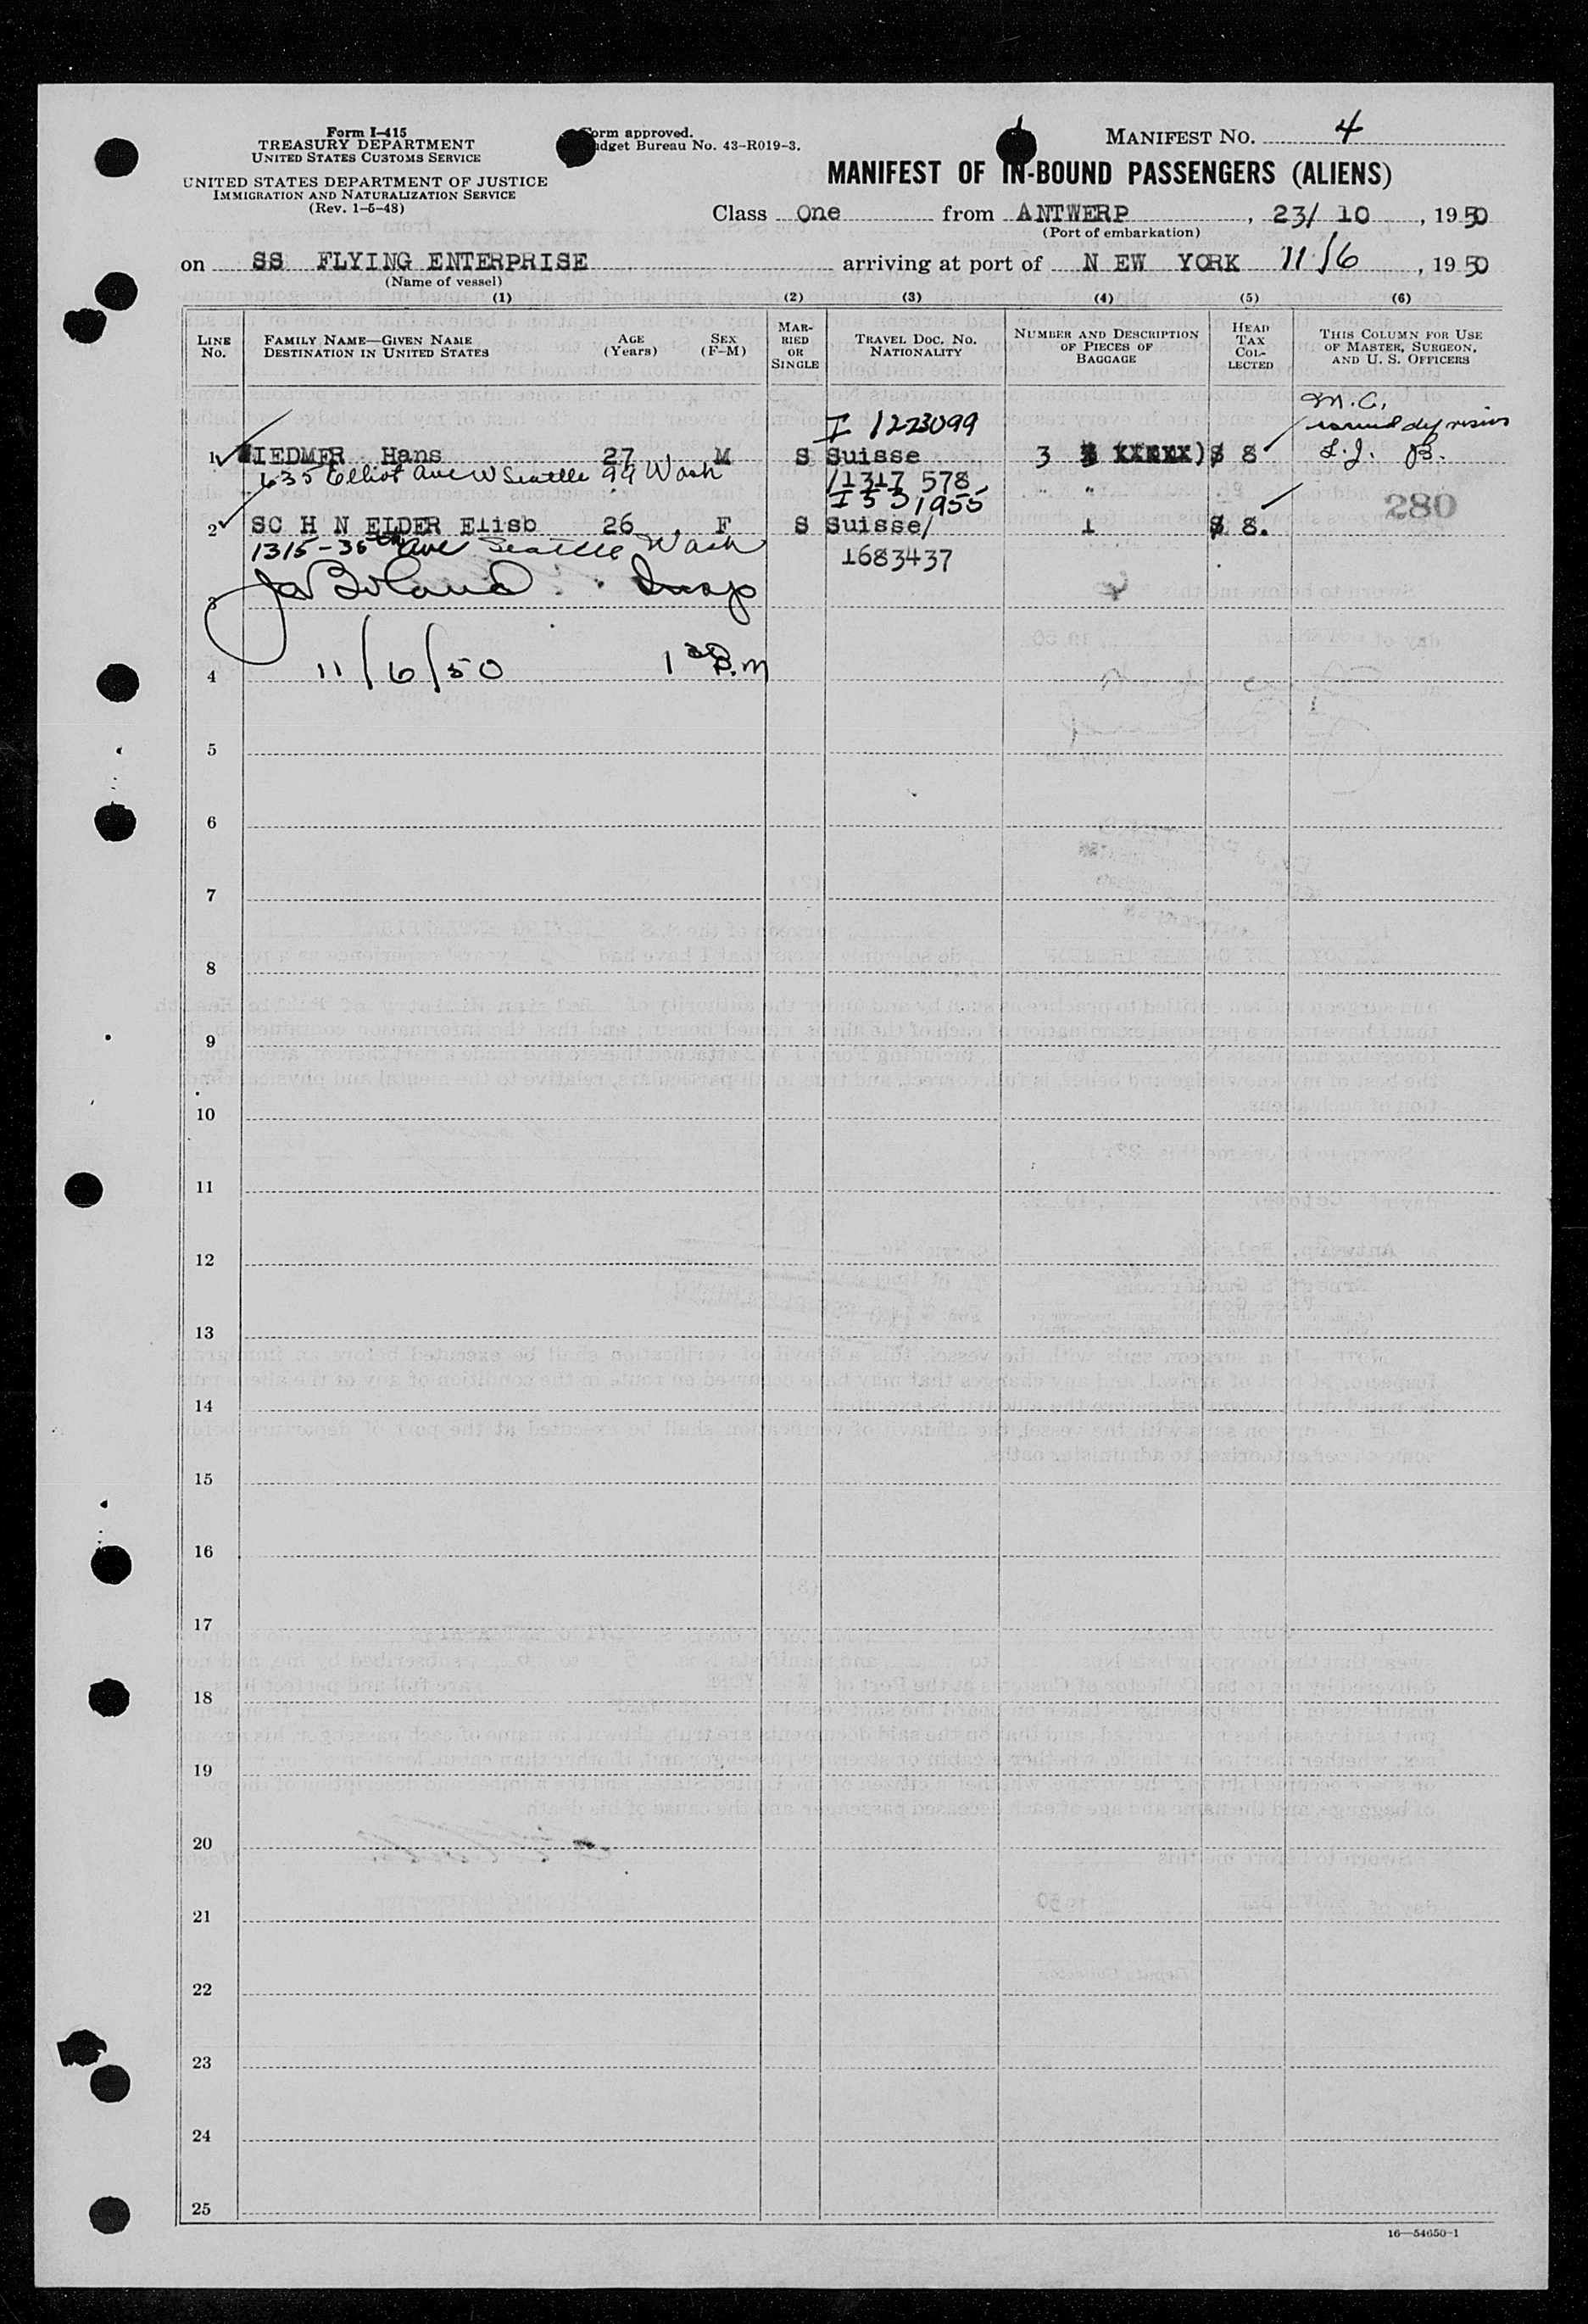 Form I-415
TREASURY DEPARTMENT
UNITED STATES CUSTOMS SERVICE
UNITED STATES DEPARTMENT OF JUSTICE
IMMIGRATION AND NATURALIZATION SERVICE
(Rev. 1-5-48)
Form approved.
Budget Bureau No. 43-R019-3.
MANIFEST NO. 4
MANIFEST OF IN-BOUND PASSENGERS (ALIENS)
Class One from ANTWERP, 23/ 10, 1950
(Port of embarkation)
on SS FLYING ENTERPRISE arriving at port of N EW YORK 11/6, 1950
(Name of vessel)
(1) (2) (3) (4) (5) (6)
LINE No.
FAMILY NAME—GIVEN NAME
DESTINATION IN UNITED STATES
AGE (Years)
SEX (F-M)
MARRIED OR SINGLE
TRAVEL DOC. NO.
NATIONALITY
NUMBER AND DESCRIPTION OF PIECES OF BAGGAGE
HEAD TAX COLLECTED
THIS COLUMN FOR USE OF MASTER, SURGEON, AND U. S. OFFICERS
M.C.
I 1223099
1 WIEDMER Hans 27 M S Suisse 3 XXXXX) $ 8 L.J. B.
635 Elliot Ave W Seattle 99 Wash /1317 578
I 531955
280
2 SC H N EIDER Elisb 26 F S Suisse/ 1 $ 8.
1315-36th Ave Seattle Wash 1683437
3 Insp
4 11/6/50 1 30 P.M
5
6
7
8
9
10
11
12
13
14
15
16
17
18
19
20
21
22
23
24
25
16—54650-1